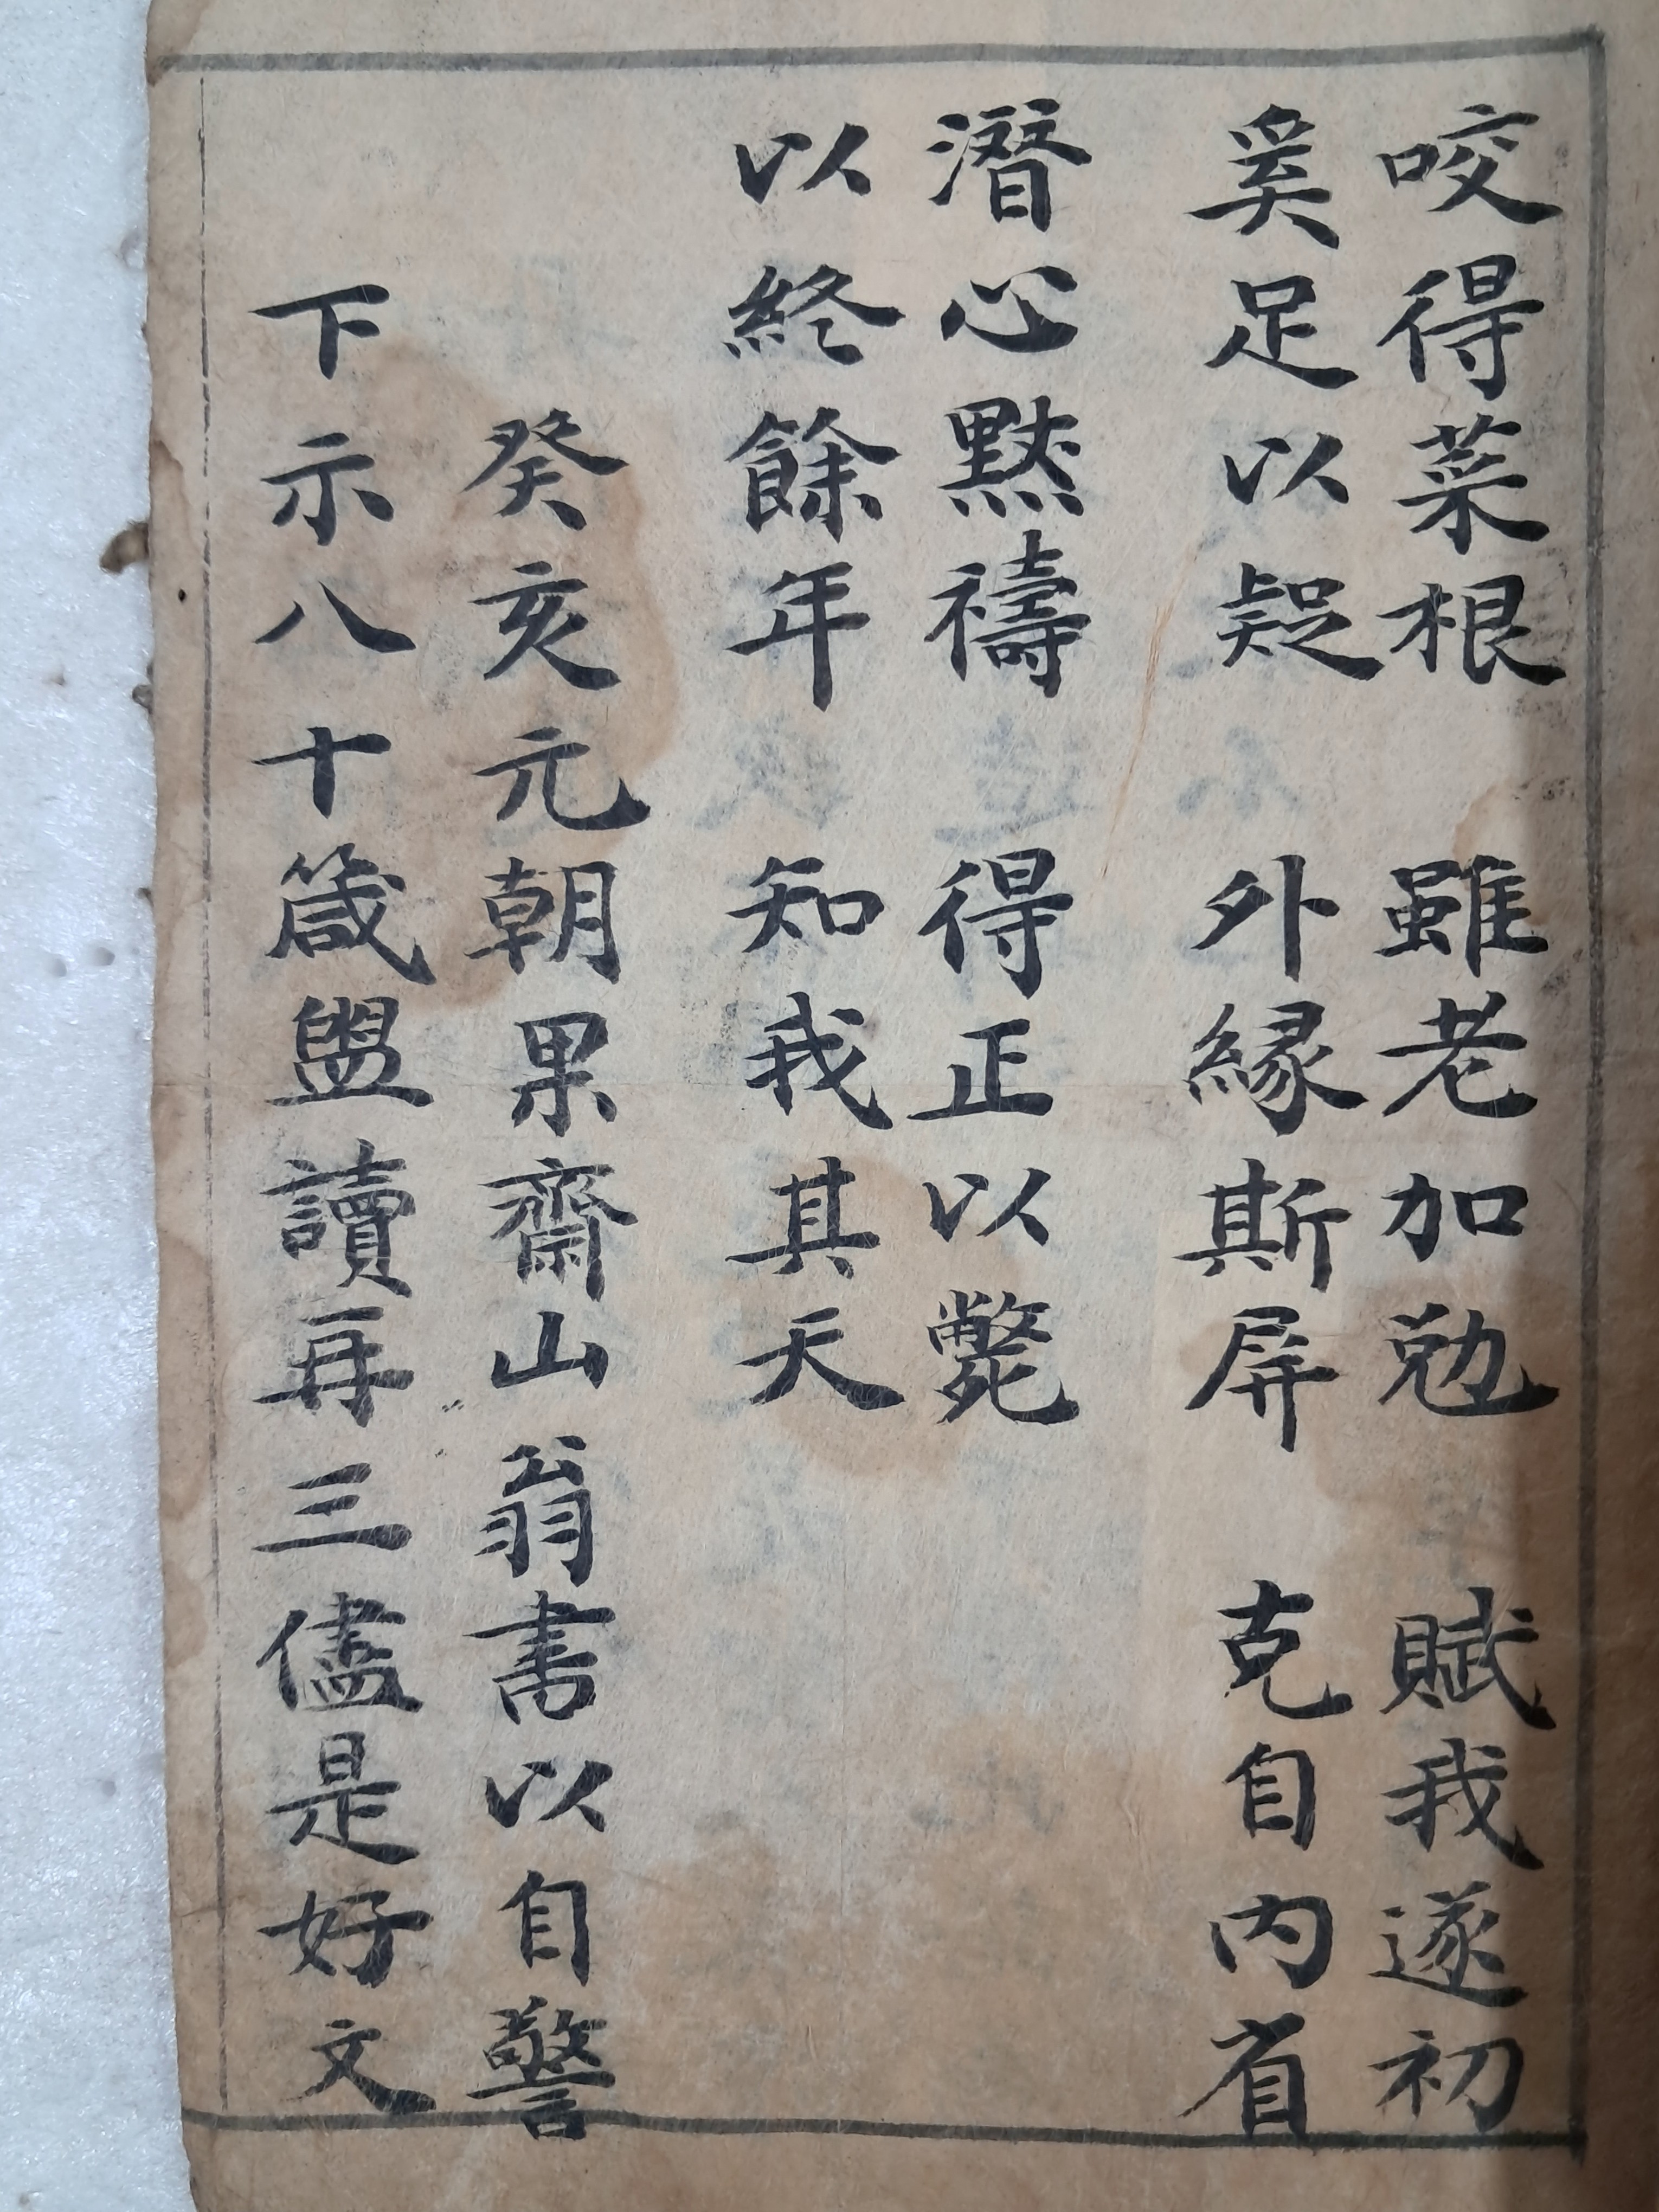 咬得菜根 雖老加勉 賦我遂初
奚足以疑 外緣斯屏 克自內省
潛心黙禱 得正以斃
以終餘年 知我其天
癸亥元朝果齋山翁書以自警
下示八十箴盥讀再三儘是好文